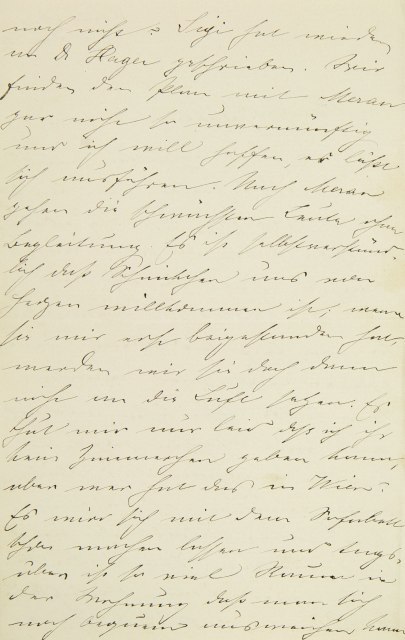 noch nicht? Sigi hat wieder
an D Hager geschrieben. Wir
finden den Plan mit Meran
gar nicht so unvernünftig
und ich will hoffen, es läßt
sich ausführen. Nach Meran
gehen die schwächsten Leute ohne
Begleitung. Es ist selbstverständ-
lich daß uns von
Herzen willkommen ist, wenn
sie mir erst beigestanden hat
werden wir sie doch dann
nicht an die Luft setzen. Es
thut mir nur leid daß ich ihr
kein Zimmerchen geben kann,
aber wer hat das in Wien?
Es wird sich mit dem
schon machen lassen und tags-
über ist so viel Raum in
der Wohnung daß man sich
noch bequem ausweichen kann